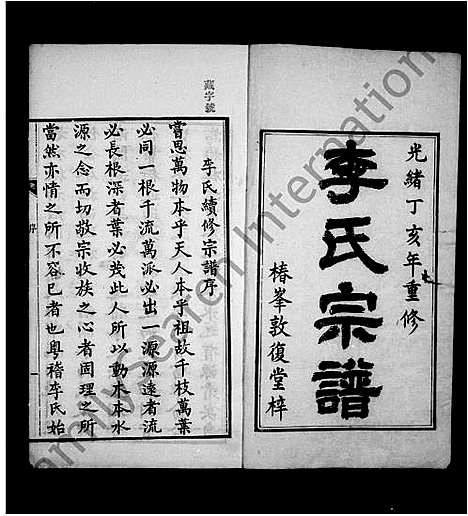 光緒丁亥年重修
李氏宗譜
椿峯敦復堂梓
藏字號
李氏續修宗譜序
嘗思萬物本乎天人本乎祖故千枝萬葉
必同一根千流萬派必出一源源遠者流
必長根深者葉必茂此人所以動木本水
源之念而切敬宗收族之心者固理之所
當然亦情之所不容已者也粵稽李氏始
序
FamilySearch International